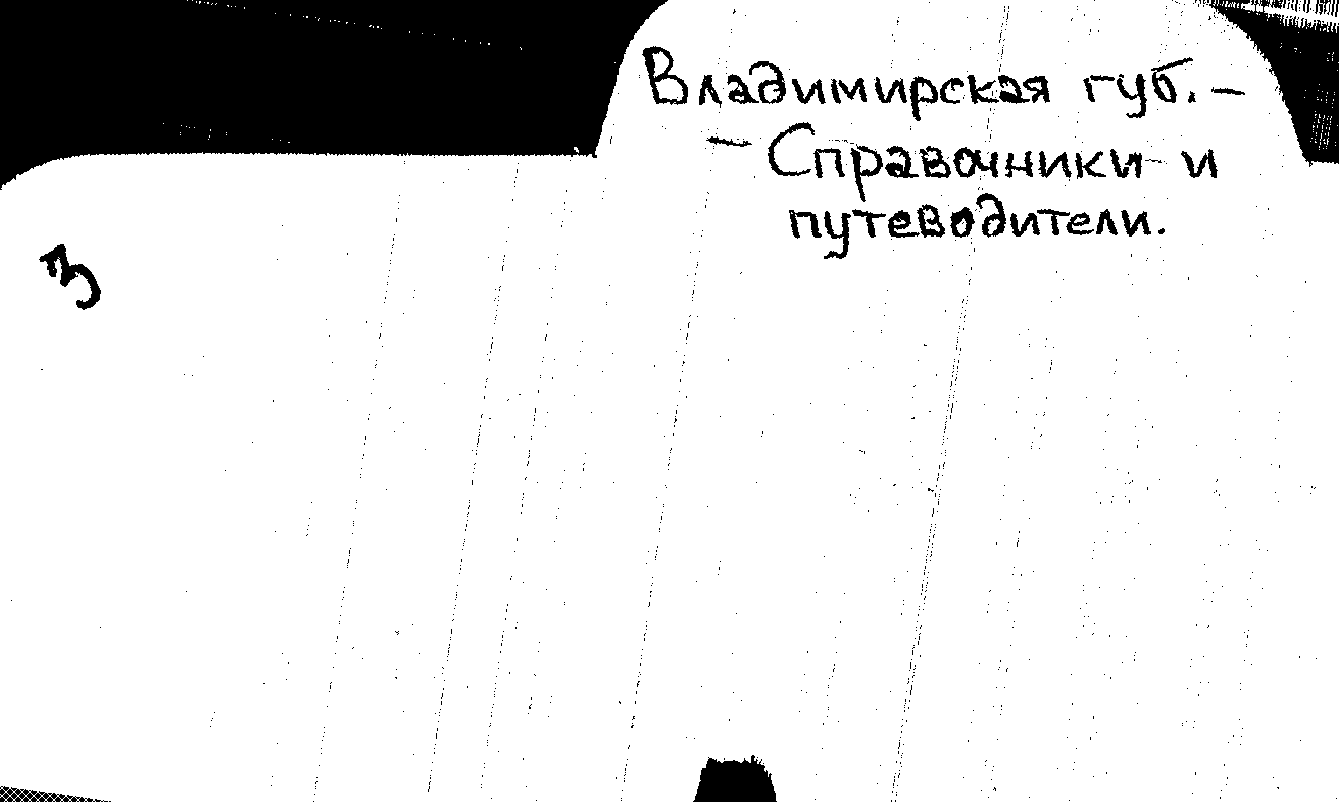 Владимирская губ. –
– Справочники и
путеводители.
3